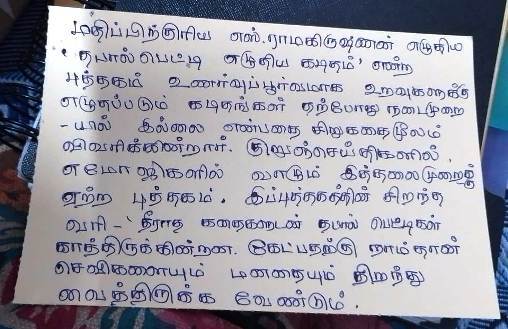 மதிப்பிற்குரிய எஸ்.ராமகிருஷ்ணன் எழுதிய
'தபால்பெட்டி எழுதிய கடிதம்' என்ற
புத்தகம் உணர்வுப்பூர்வமாக உறவுகளுக்கு
எழுதப்படும் கடிதங்கள் தற்போது நடைமுறை
-யில் இல்லை என்பதை சிறுகதைமூலம்
விவரிக்கின்றார். குறுஞ்செய்திகளில்,
எமோஜிகளில் வாழும் இத்தலைமுறைக்கு
ஏற்ற புத்தகம். இப்புத்தகத்தின் சிறந்த
வரி - 'தீராத கதைகளுடன் தபால் பெட்டிகள்
காத்திருக்கின்றன. கேட்பதற்கு நாம்தான்
செவிகளையும் மனதையும் திறந்து
வைத்திருக்க வேண்டும்.